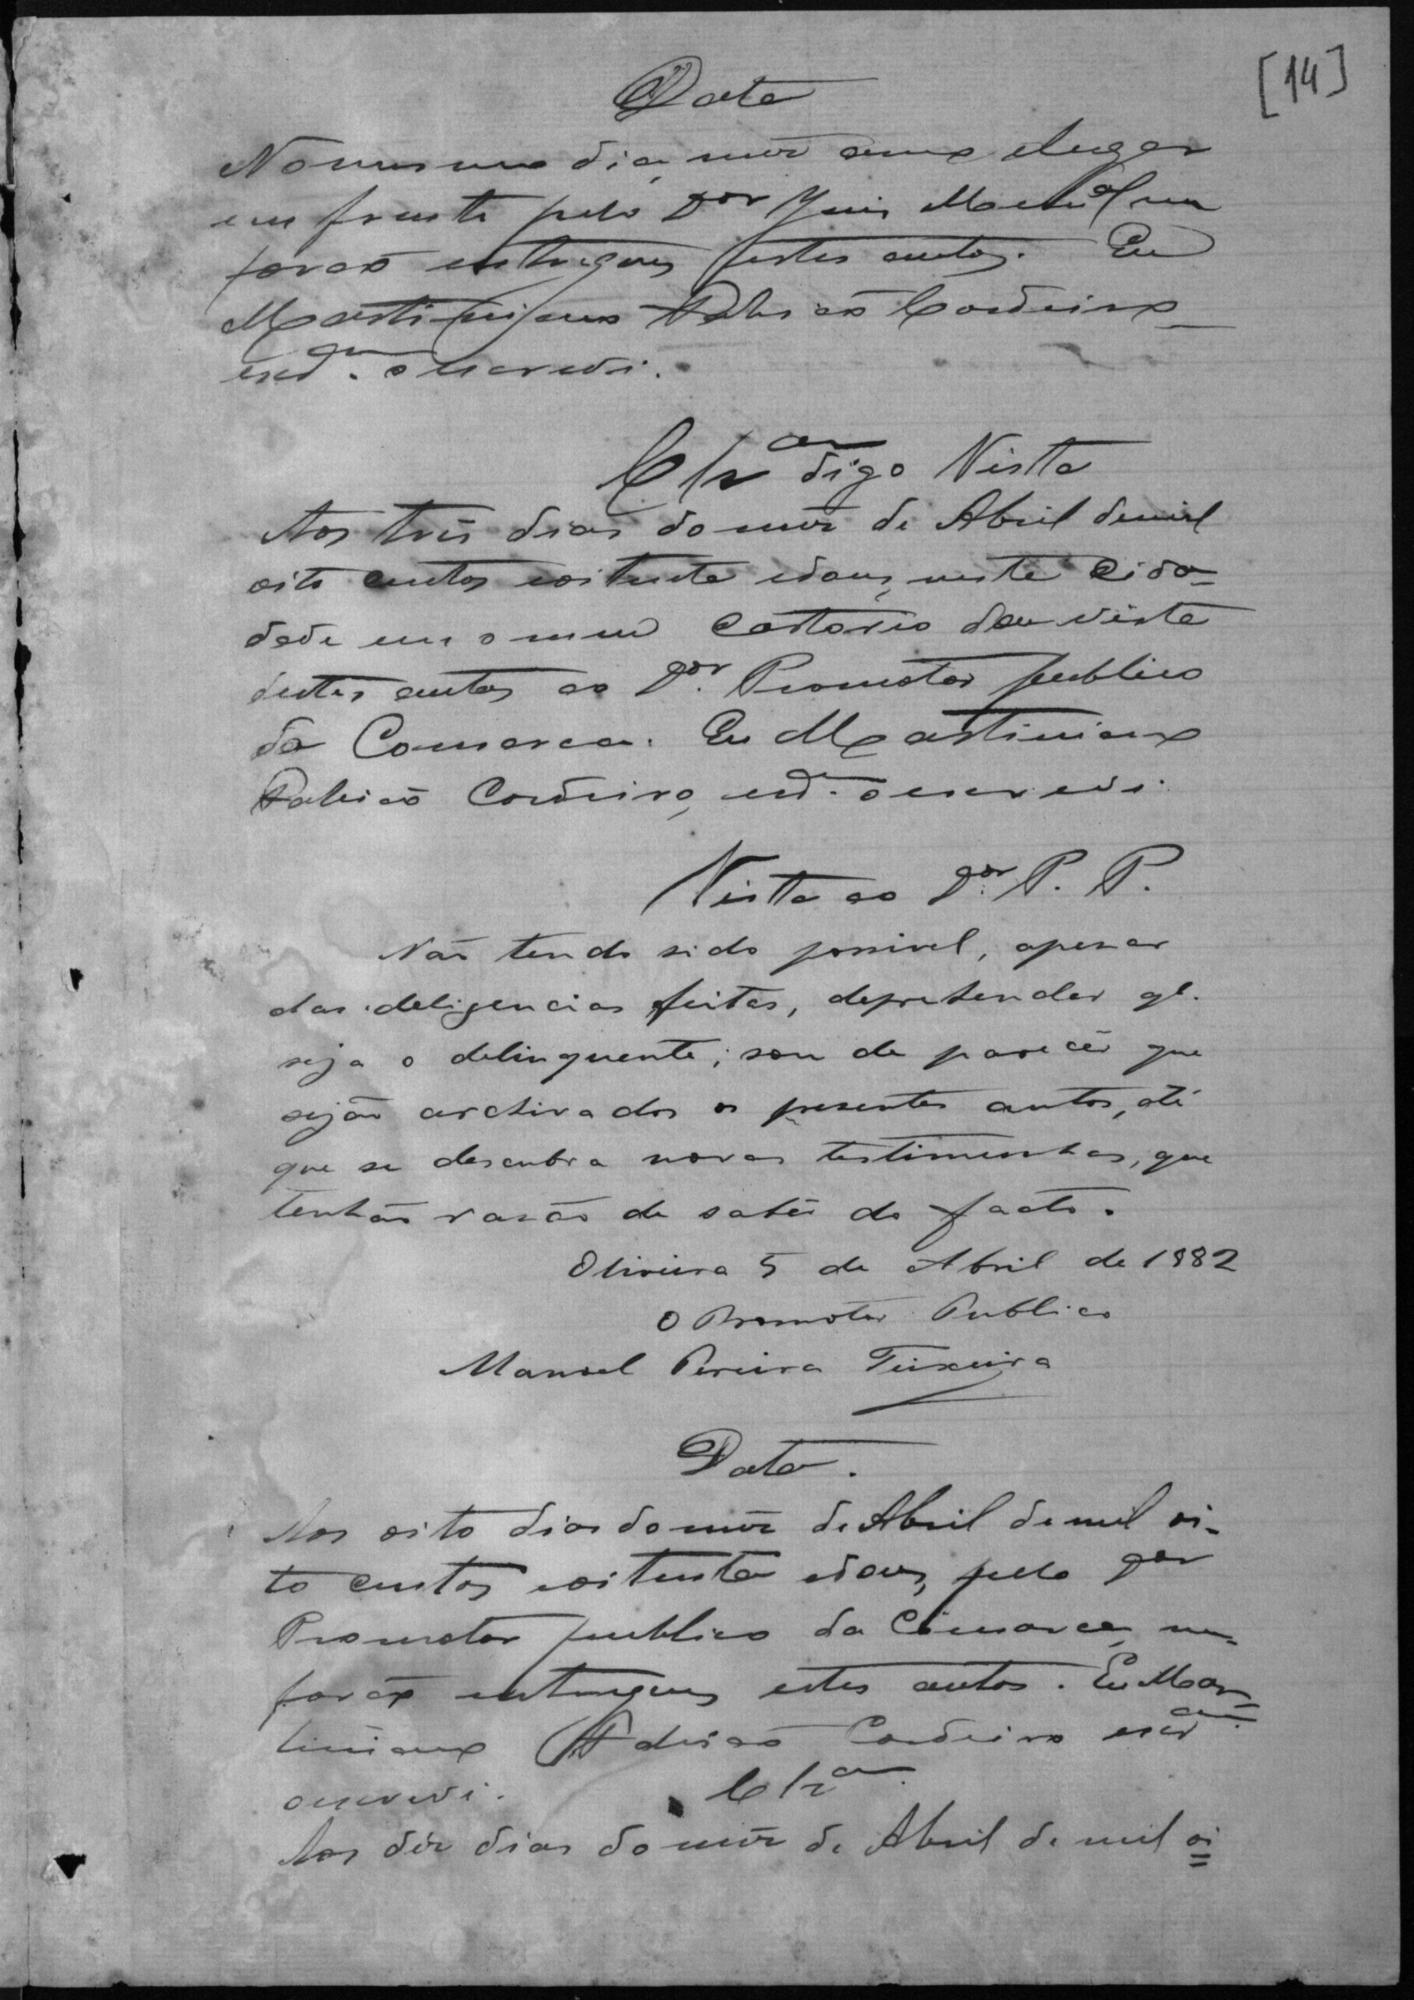 [14]
Data
No mesmo dia, mez anno e lugar
em frente pelo Dor Juis Mal me
forão entregues estes autos. Eu
Martiniano Adrião Cordeiro
escam. o escrevi.
Clzam digo Vista
Aos três dias do mez de Abril demil
oito centos eoitenta edous, nesta Cida-
dade em o meu Cartorio dou vista
destes autos ao Dor. Promotor publico
da Comarca. Eu Martiniano
Adrião Cordeiro, escam. o escrevi.
Vista ao Dor. P. P.
Não tendo sido possivel, apezar
das deligencias feitas, deprehender ql.
seja o delinquente; sou de parecêr que
sejão archivados os presentes autos, até
que se descubra novas testimunhas, que
tenhão rasão de sabêr do facto.
Oliveira 5 de Abril de 1882
O Promotor Publico
Manoel Pereira Teixeira
Data.
Aos oito dias do mez de Abril de mil oi-
to centos eoitenta edous, pelo Dor
Promotor publico da Comarca me
forão entregues estes autos. Eu Mar-
tiniano Adrião Cordeiro escam.
oescrevi. Clzam.
Aos déz dias do mez de Abril de mil oi=